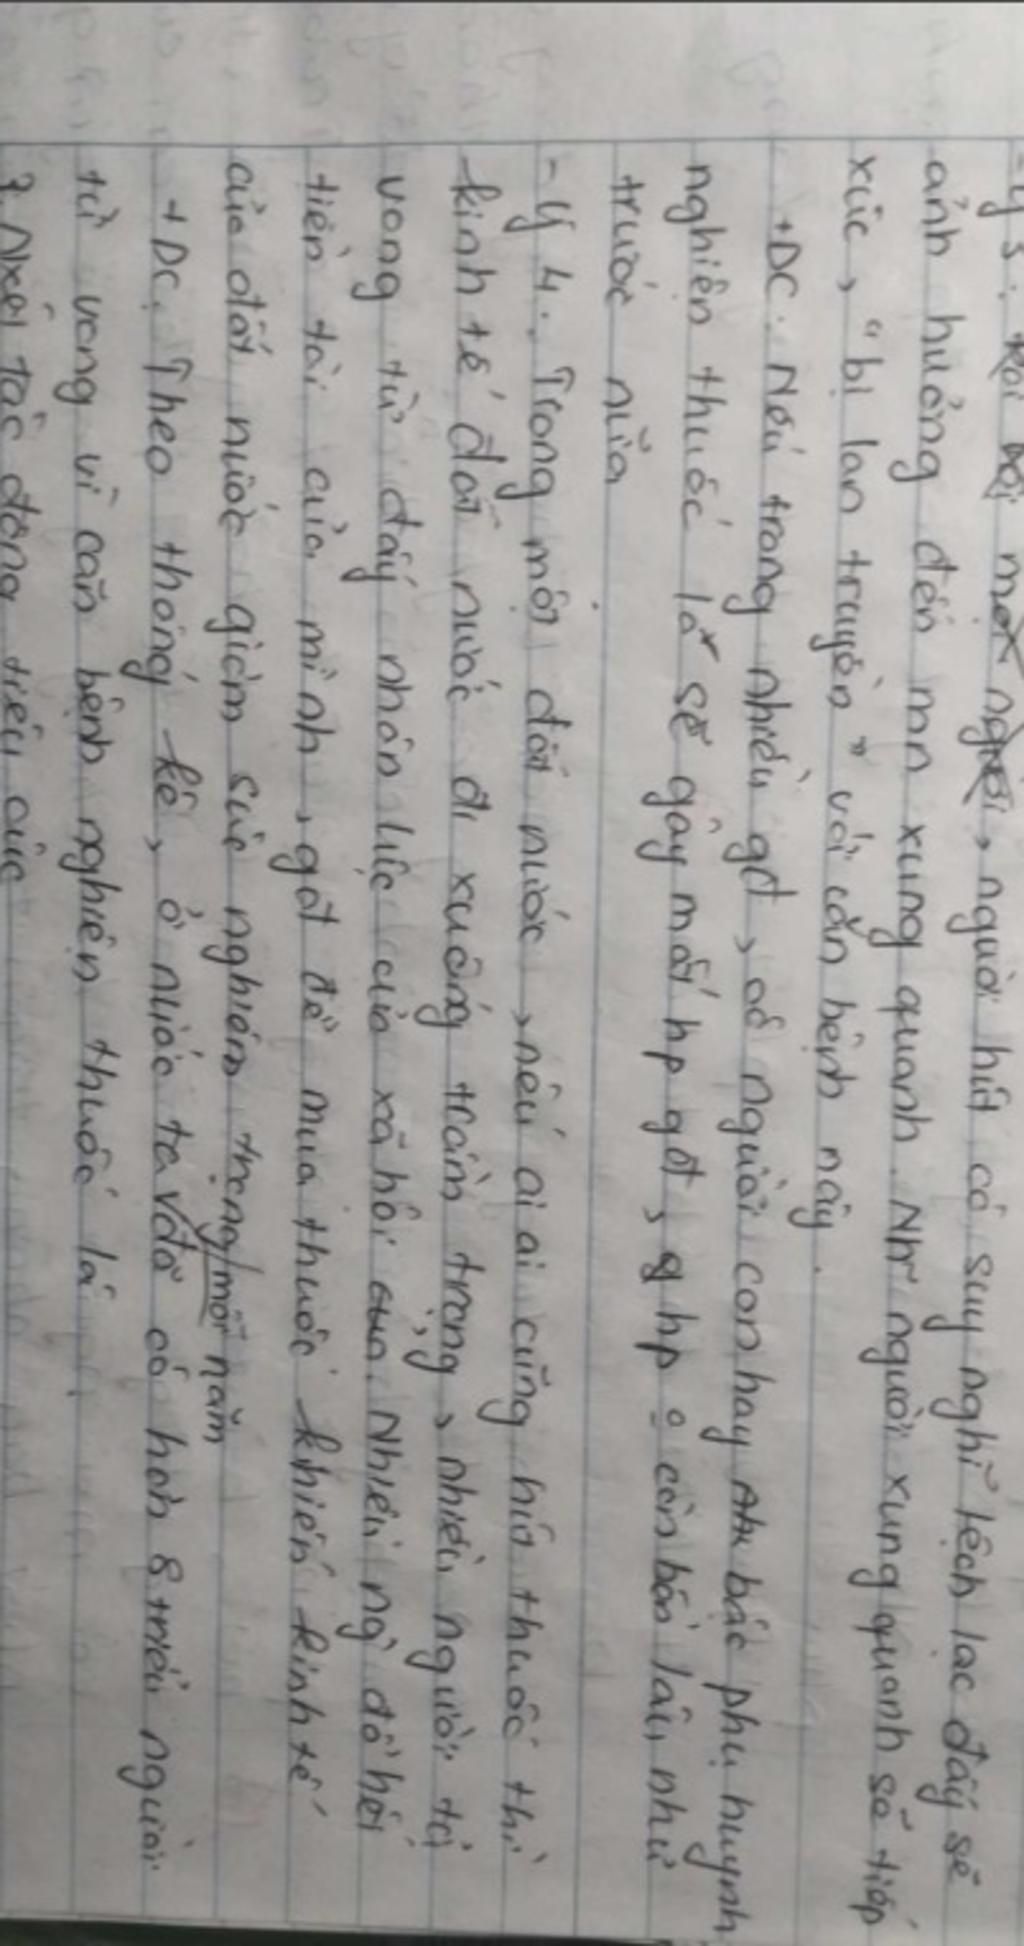 - Ý 3: Đối với một người, người hút có suy nghĩ lệch lạc đấy sẽ
ảnh hưởng đến mn xung quanh. Như người xung quanh sẽ tiếp
xúc, "bị lan truyền" với căn bệnh này.
+DC: Nếu trong nhiều gđ, có người con hay bác phụ huynh
nghiện thuốc lá sẽ gây mất hp gđ, g hp o còn bền lâu như
trước nữa
- Ý 4: Trong một đất nước, nếu ai ai cũng hút thuốc thì
kinh tế đất nước đi xuống trầm trọng, nhiều người tử
vong từ đấy nhân lực của xã hội Nhiều ng' đổ hết
tiền tài của mình, gđ để mua thuốc khiến kinh tế
của đất nước giảm sút nghiêm trọng
+DC: Theo thống kê, ở nước ta mỗi năm đã có hơn 8 triệu người
tử vong vì căn bệnh nghiện thuốc lá.
3. Nxét tác động tiêu cực